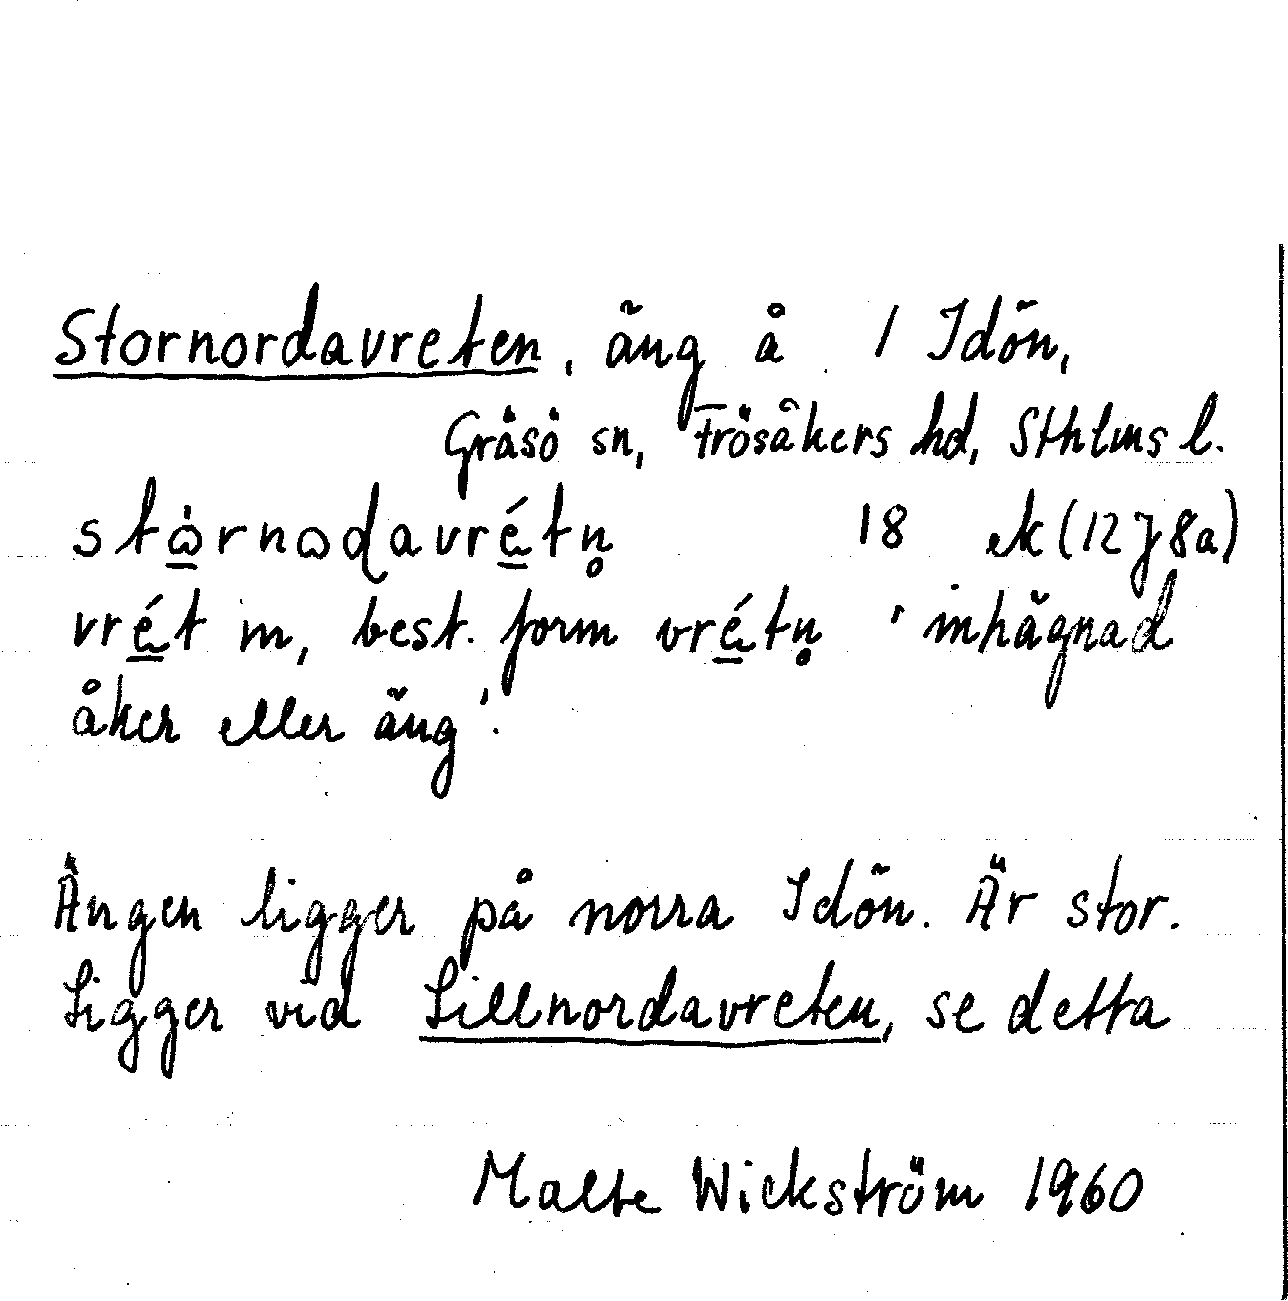 Stornordavreten, äng å 1 Idön,
Gräsö sn, Frösåkers hd, Sthlms l.
stὼ̲rnωdavré̲tn̥ 18 ek (12 J 8a)
vré̲t m, best. form vré̲tn̥ 'inhägnad
åker eller äng'.
Ängen ligger på norra Idön. Är stor.
Ligger vid Lillnordavreten, se detta
Malte Wickström 1960